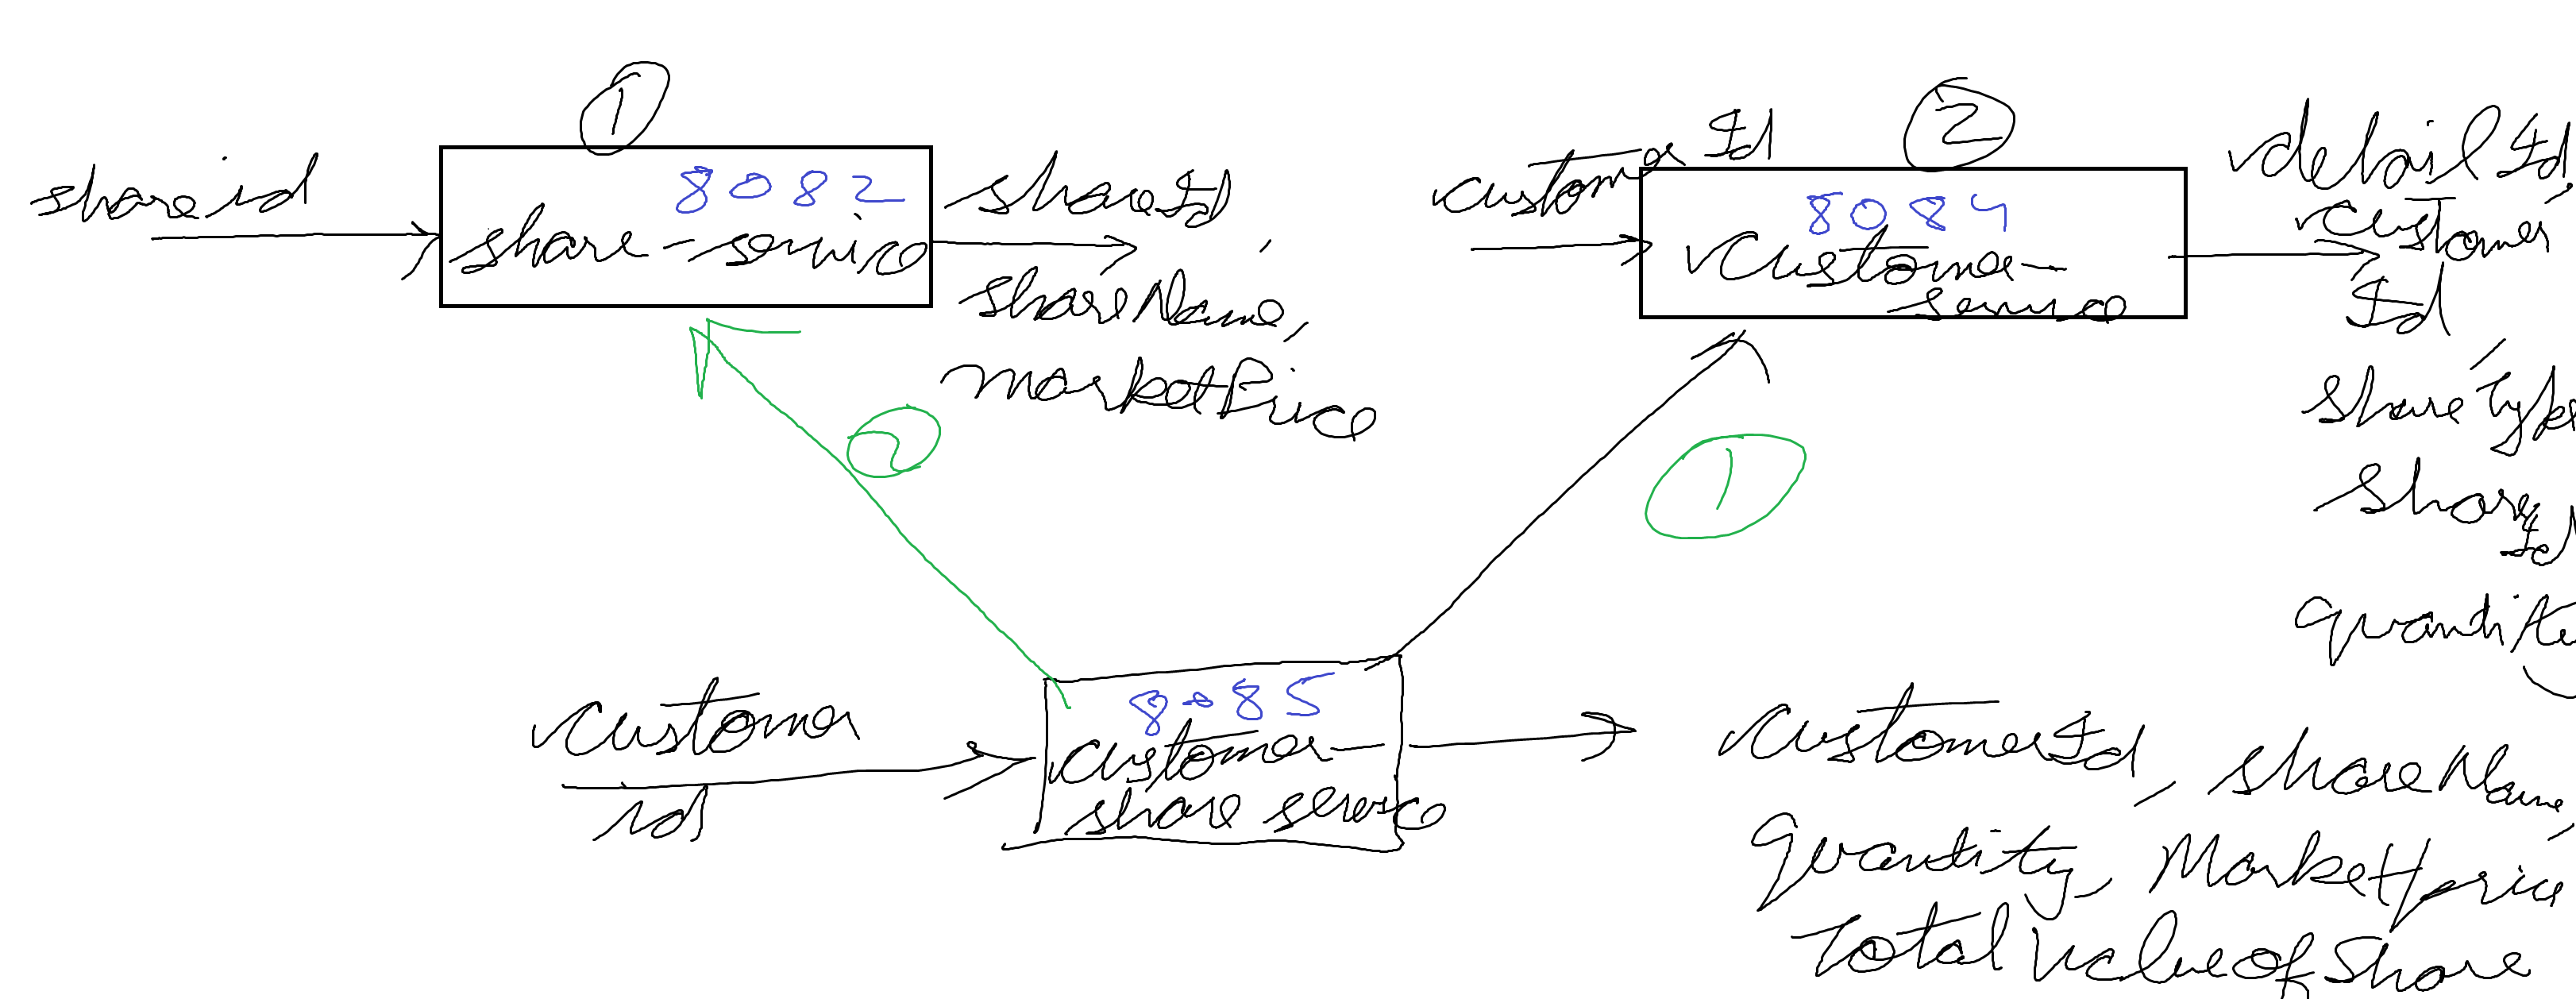 1
share id
8082
share-service
shareId,
shareName,
marketPrice
2
customer Id
8084
customer-
service
detailId,
customer
Id,
shareType
share
Id
quantity
2
1
customer
id
8085
customer-
share service
customerId, shareName,
quantity, Marketprice
Total Value of Share